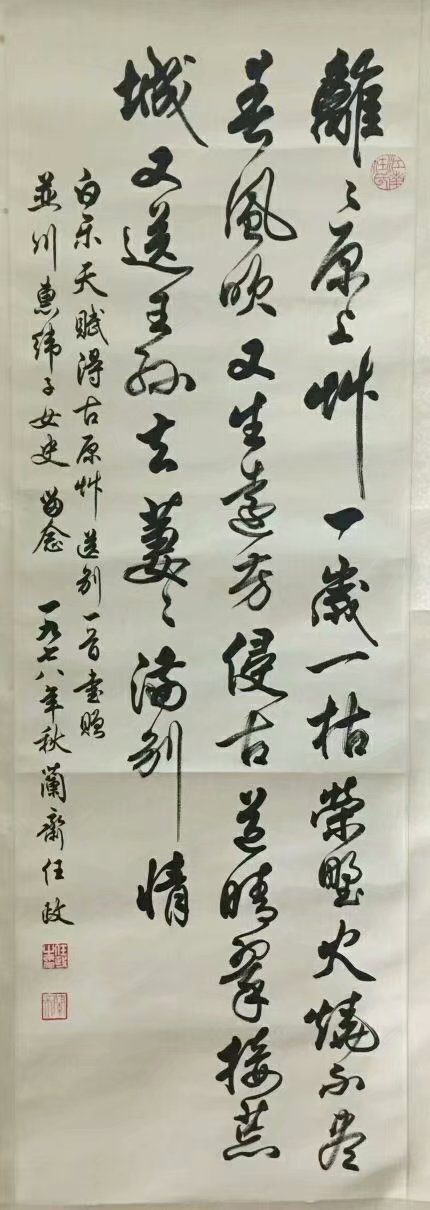 離〻原上艸一歲一枯榮野火燒不盡
春風吹又生遠芳侵古道晴翠接荒
城又送王孫去萋〻滿別情
白樂天賦得古原艸送別一首書贈
並川惠緯子女史 留念 一九七八年秋蘭齋任政